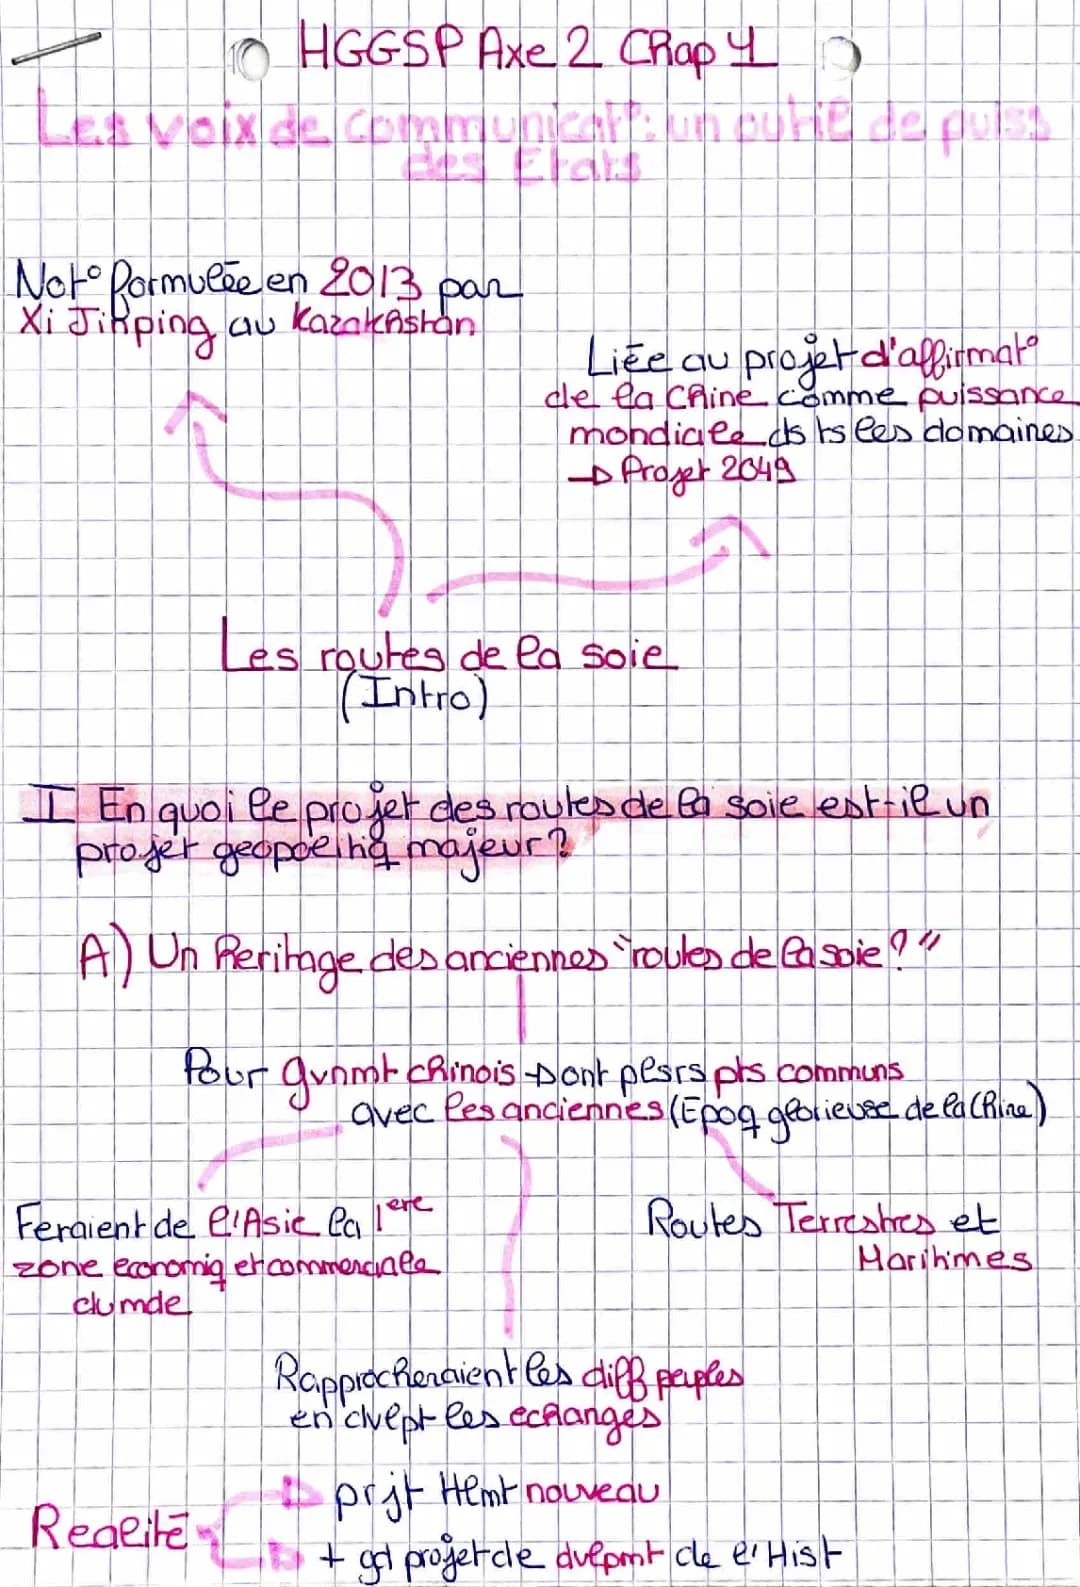 HGGSP Axe 2 Chap 4
Les voix de communicat°: un outil de puiss
des Etats
Not° formulée en 2013 par
Xi Jinping au Kazakhstan
Liée au projet d'affirmat°
de la Chine comme puissance
mondiale ds ts les domaines
→ Projet 2049
Les routes de la soie
(Intro)
I En quoi le projet des routes de la soie est-il un
projet geopolitiq majeur?
A) Un heritage des anciennes "routes de la soie?"
Pour gvnmt chinois → ont plsrs pts communs
avec les anciennes (Epoq glorieuse de la Chine)
Feraient de l'Asie la 1ere
zone economiq et commerciale
du mde
Routes Terrestres et
Maritimes
Rapprocheraient les diff peuples
en dvlpt les echanges
Realité
→ prjt Hlmt nouveau
→ + gd projet de dvlpmt de l'Hist